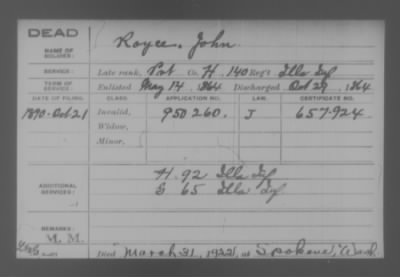 DEAD
NAME OF SOLDIER:
Royce, John
SERVICE:
Late rank, Pvt Co. H, 140 Reg't Ills Inf
TERM OF SERVICE:
Enlisted May 14, 1864 Discharged Oct 29, 1864
DATE OF FILING. CLASS. APPLICATION NO. LAW. CERTIFICATE NO.
1890-Oct 21 Invalid, 950260. J 657924
Widow,
Minor,
ADDITIONAL SERVICES:
H. 92 Ills Inf
G 65 Ills Inf
REMARKS:
M. M.
Died March 31, 1922, at Spokane, Wash